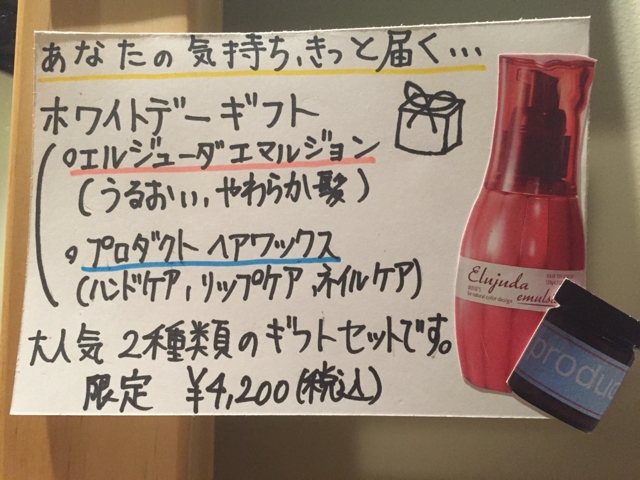 あなたの気持ち、きっと届く…
ホワイトデーギフト
エルジューダエマルジョン
(うるおい、やわらか髪)
プロダクト ヘアワックス
(ハンドケア、リップケア、ネイルケア)
大人気 2種類のギフトセットです。
限定 ¥4,200(税込)
Elujuda
emuls
produc